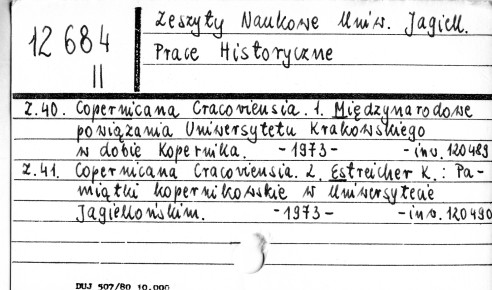 12 684
II
Zeszyty Naukowe Uniw. Jagiell.
Prace Historyczne
Z.40. Copernicana Cracoviensia. 1. Międzynarodowe
powiązania Uniwersytetu Krakowskiego
w dobie Kopernika. -1973- -inw. 120489
Z.41. Copernicana Cracoviensia. 2. Estreicher K.: Pa-
miątki kopernikowskie w Uniwersytecie
Jagiellońskim. -1973- -inw. 120490
DUJ 507/80 10.000